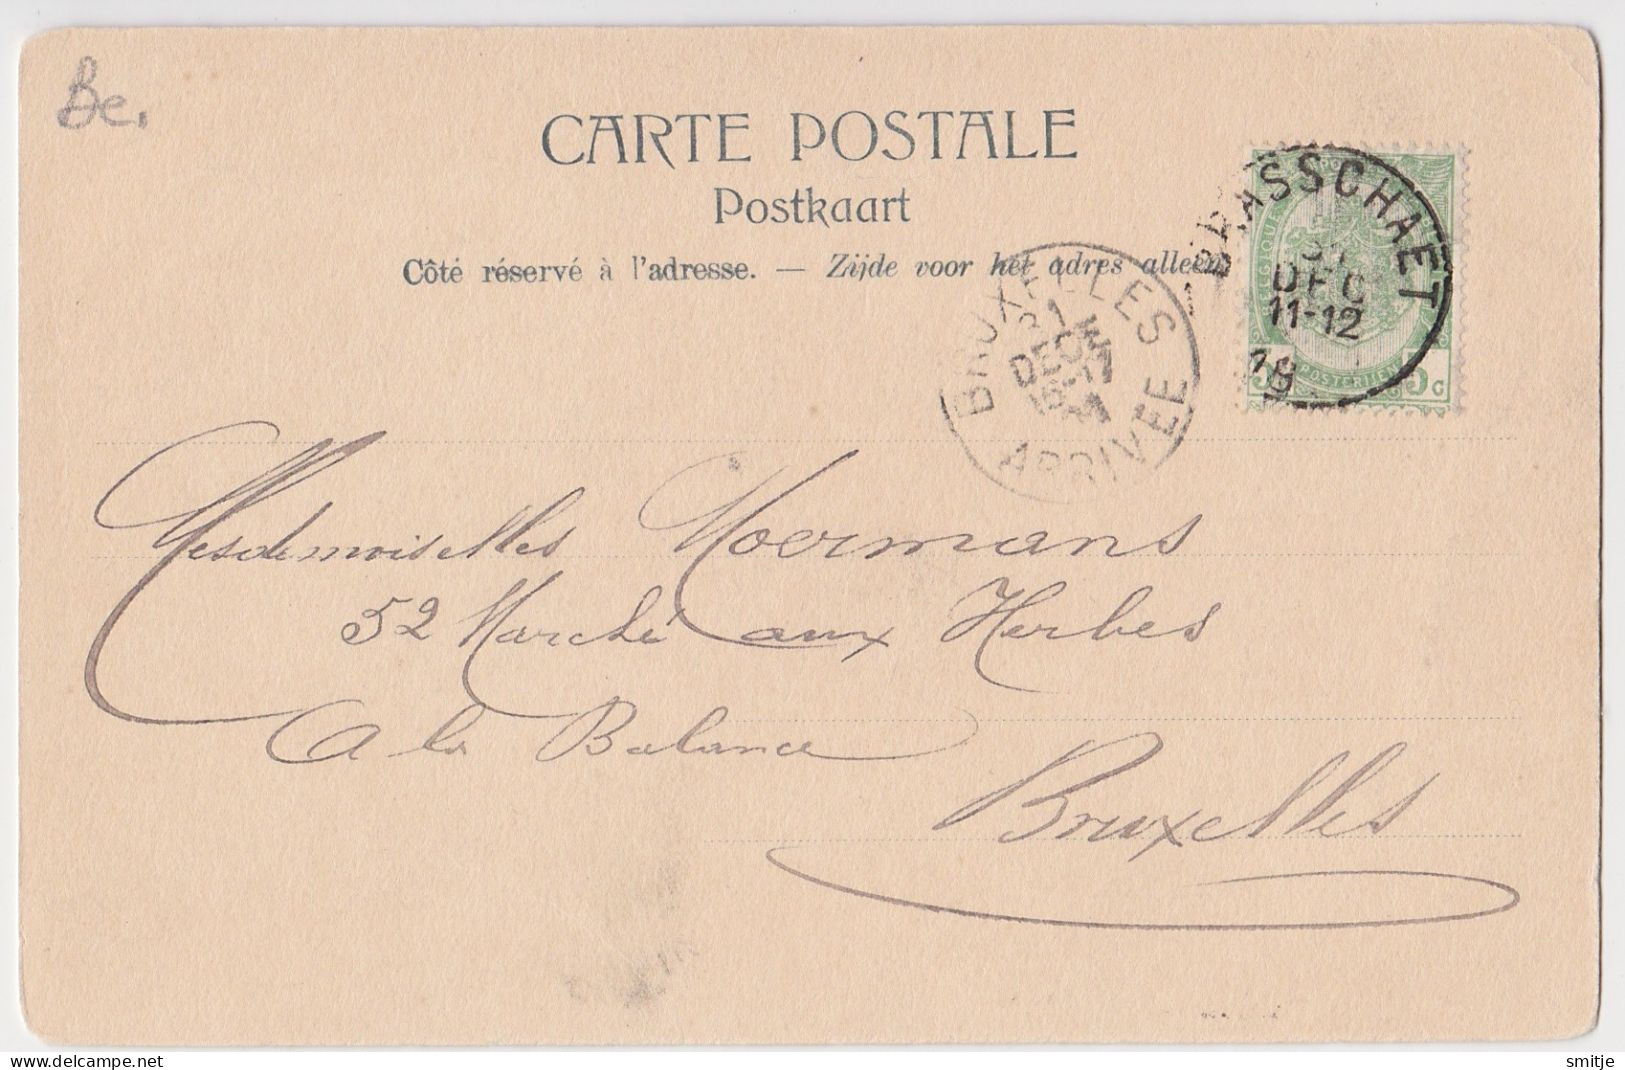 Be.
CARTE POSTALE
Postkaart
Côté réservé à l'adresse. — Zijde voor het adres alleen
BRASSCHAET
31
DEC
11-12
BELGIQUE
POSTERIJEN
5 C
BRUXELLES
31
DECE
16-17
ARRIVÉE
Mesdemoiselles Moermans
52 Marché aux Herbes
A la Balance
Bruxelles
www.delcampe.net
smitje